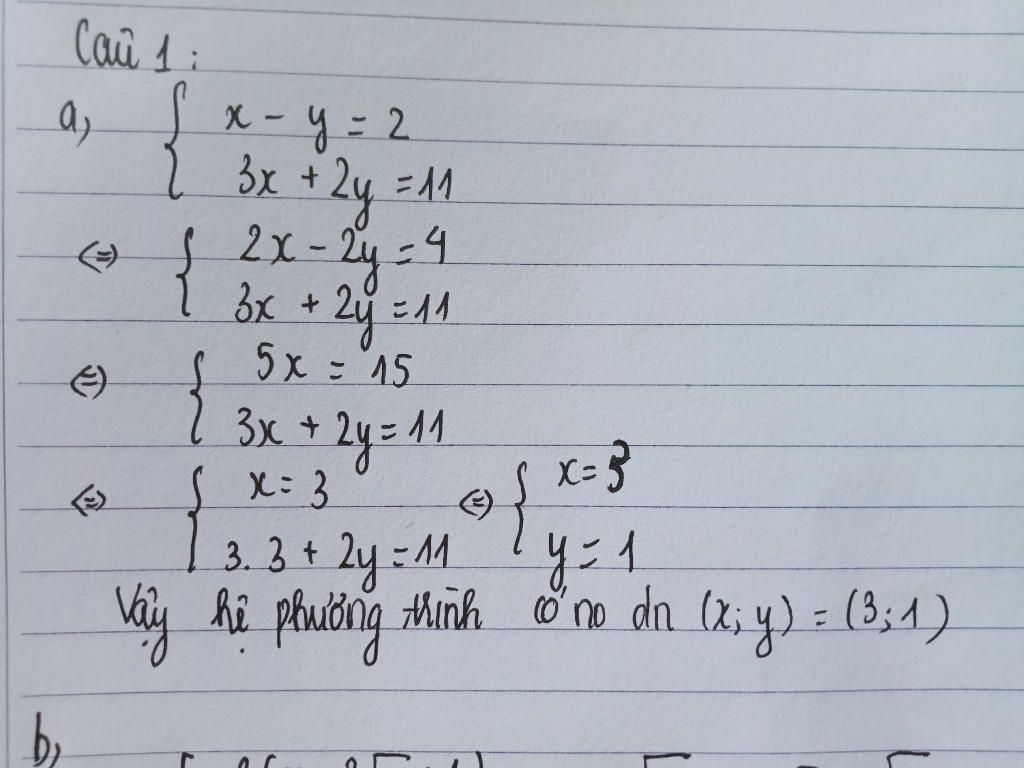 Câu 1 :
a, { x - y = 2
3x + 2y = 11
<=> { 2x - 2y = 4
3x + 2y = 11
<=> { 5x = 15
3x + 2y = 11
<=> { x = 3 <=> { x = 3
3. 3 + 2y = 11 y = 1
Vậy hệ phương trình có no dn (x; y) = (3; 1)
b,